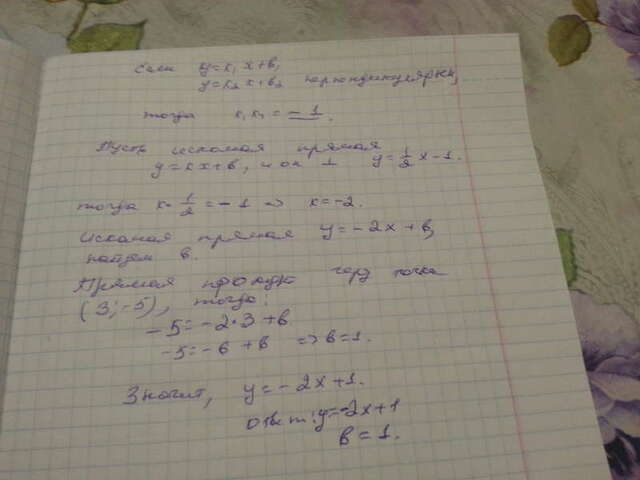 Если y=k₁x+b₁
y=k₂x+b₂ перпендикулярны,
тогда k₁k₂=-1.
Пусть искомая прямая
y=kx+b, и он ⊥ y=½x-1.
тогда k·½=-1 ⇒ k=-2.
Искомая прямая y=-2x+b,
найдем b.
Прямая проходит через точка
(3;-5), тогда:
-5=-2·3+b
-5=-6+b ⇒ b=1.
Значит, y=-2x+1.
Ответ: y=-2x+1
b=1.